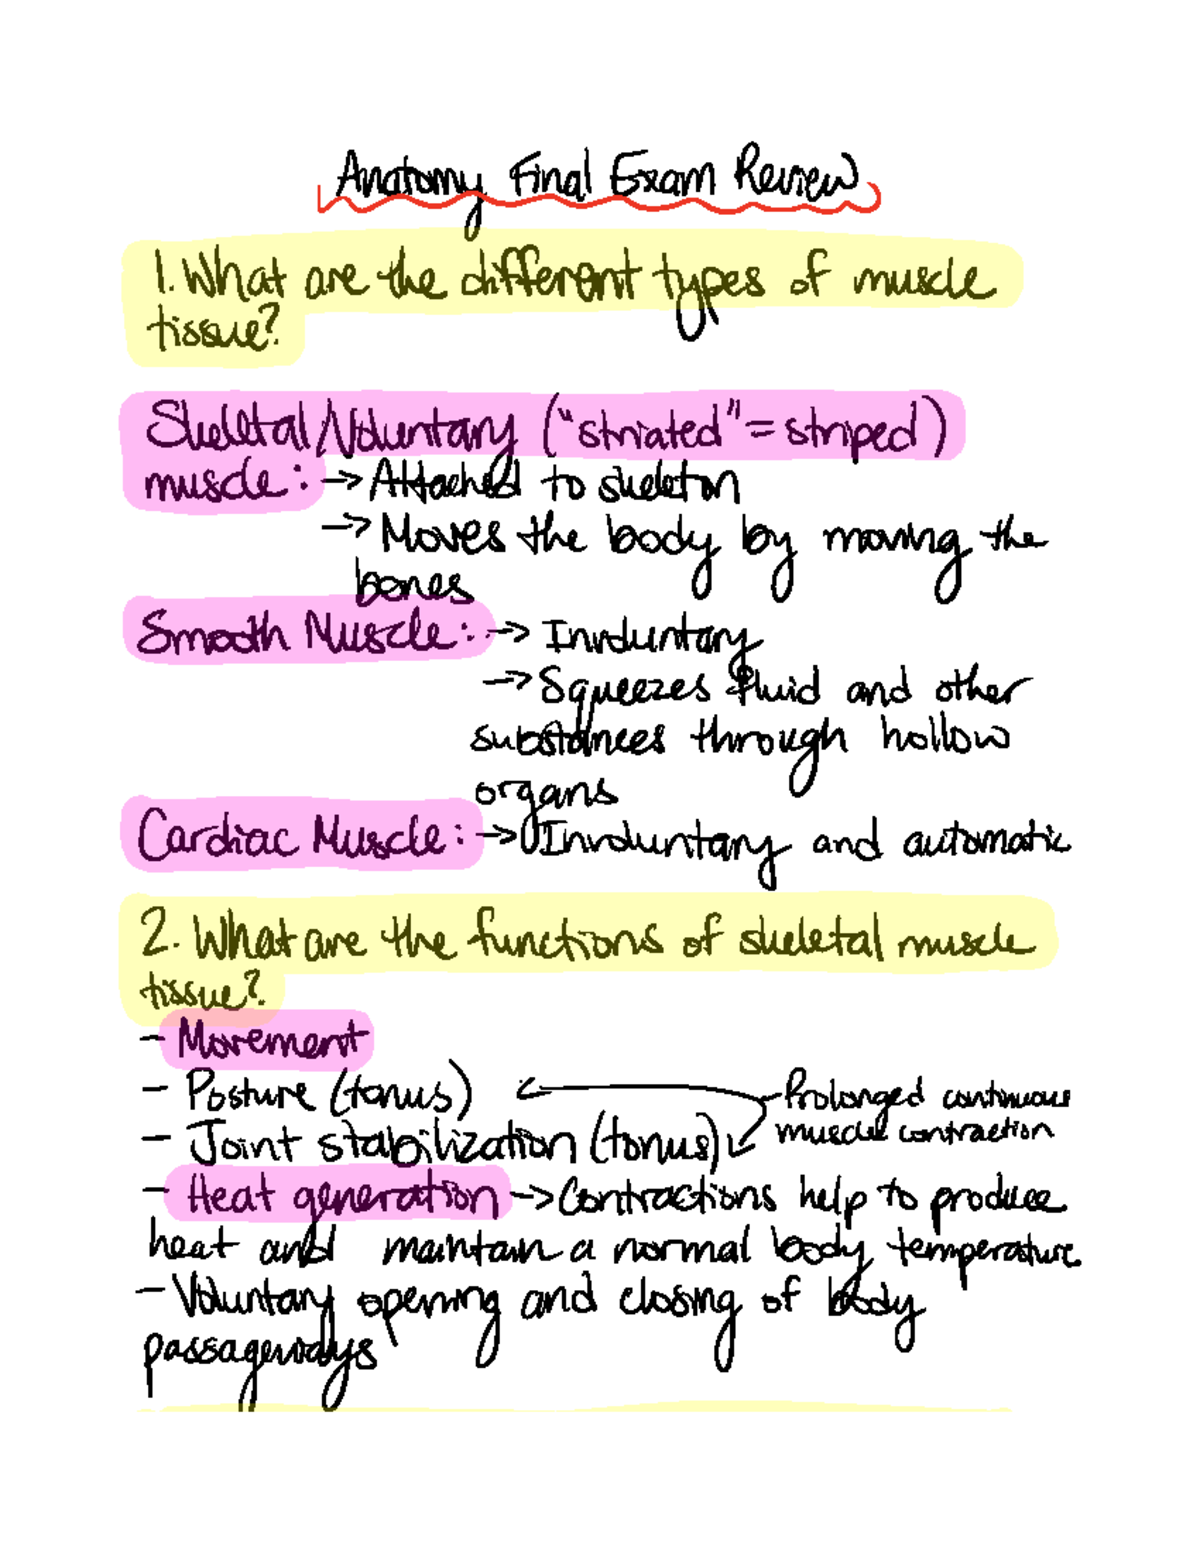 Anatomy Final Exam Review
1. What are the different types of muscle
tissue?
Skeletal/Voluntary ("striated" = striped)
muscle: → Attached to skeleton
→ Moves the body by moving the
bones
Smooth Muscle: → Involuntary
→ Squeezes fluid and other
substances through hollow
organs
Cardiac Muscle: → Involuntary and automatic
2. What are the functions of skeletal muscle
tissue?
- Movement
- Posture (tonus) ← Prolonged continuous
muscle contraction
- Joint stabilization (tonus)
- Heat generation → Contractions help to produce
heat and maintain a normal body temperature
- Voluntary opening and closing of body
passageways